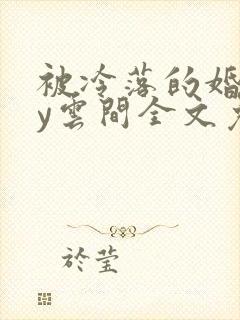 被冷落的婚
y雲間全文
於瑩